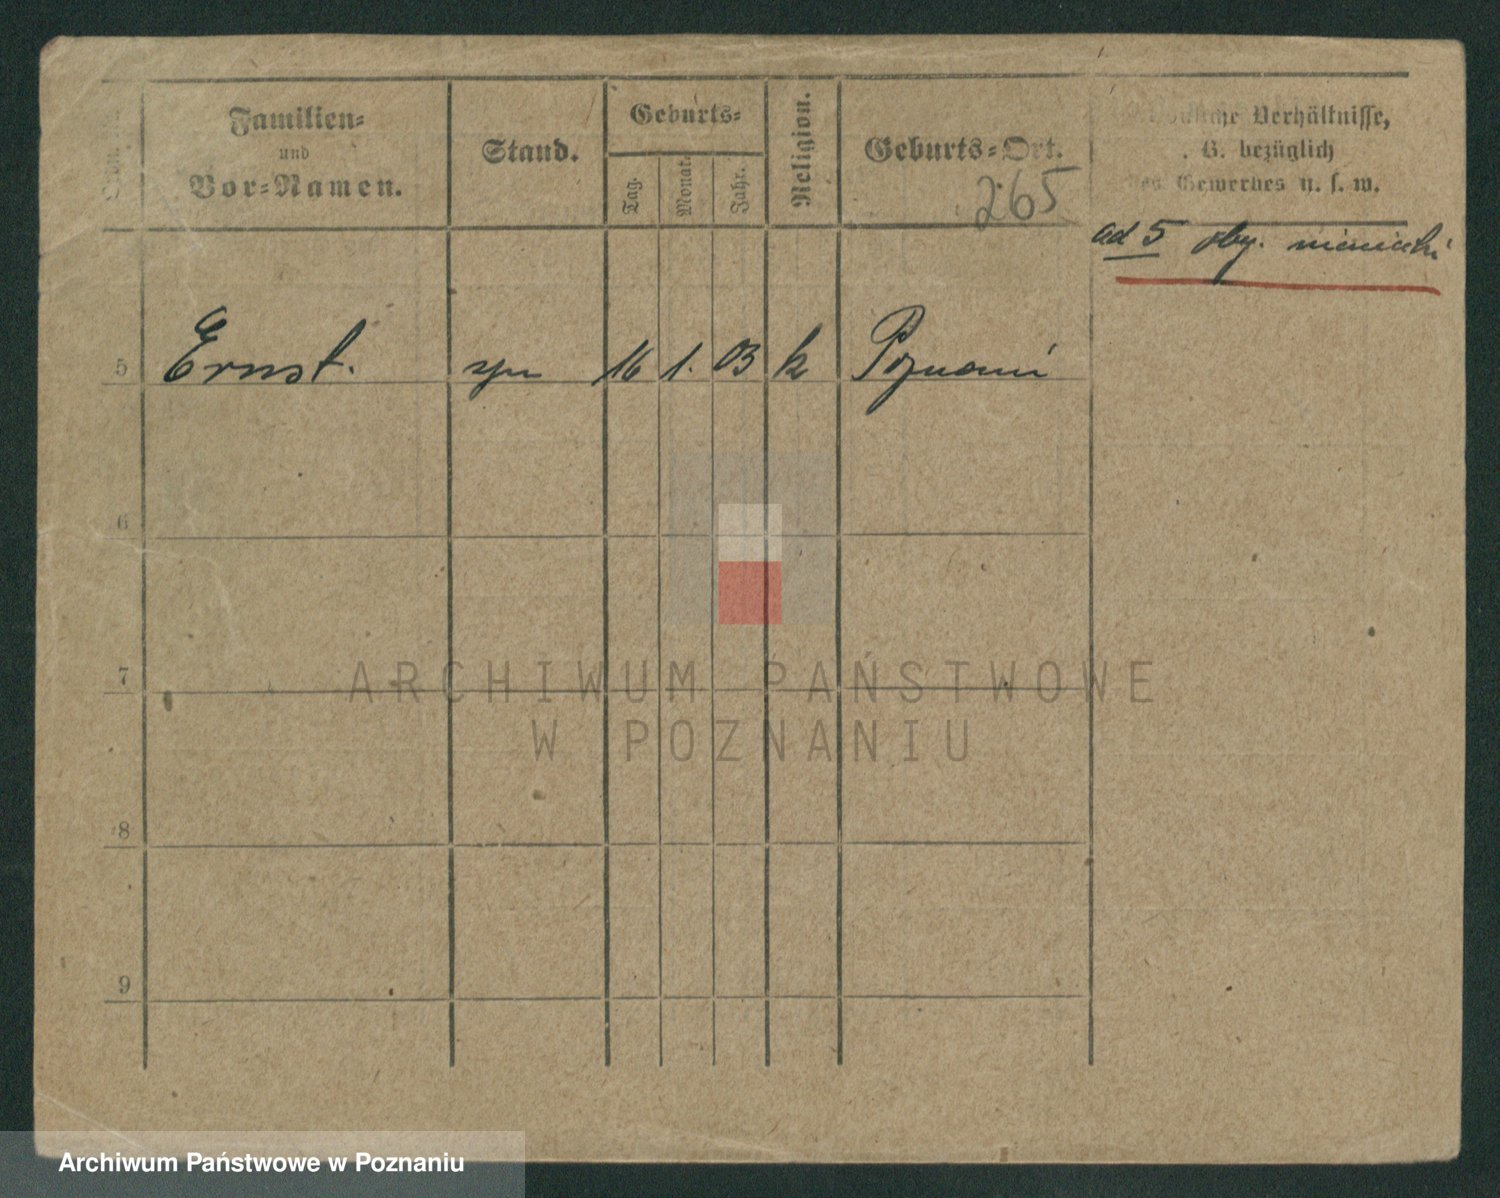 Familien=
und
Vor=Namen.
Stand.
Geburts=
Tag.
Monat.
Jahr.
Religion.
Geburts=Ort.
265
Verhältnisse,
B. bezüglich
des Gewerbes u. s. w.
ad 5 oby. niemiecki
5 Ernst. syn 16 1. 03 k Poznań
6
7
8
9
ARCHIWUM PAŃSTWOWE
W POZNANIU
Archiwum Państwowe w Poznaniu